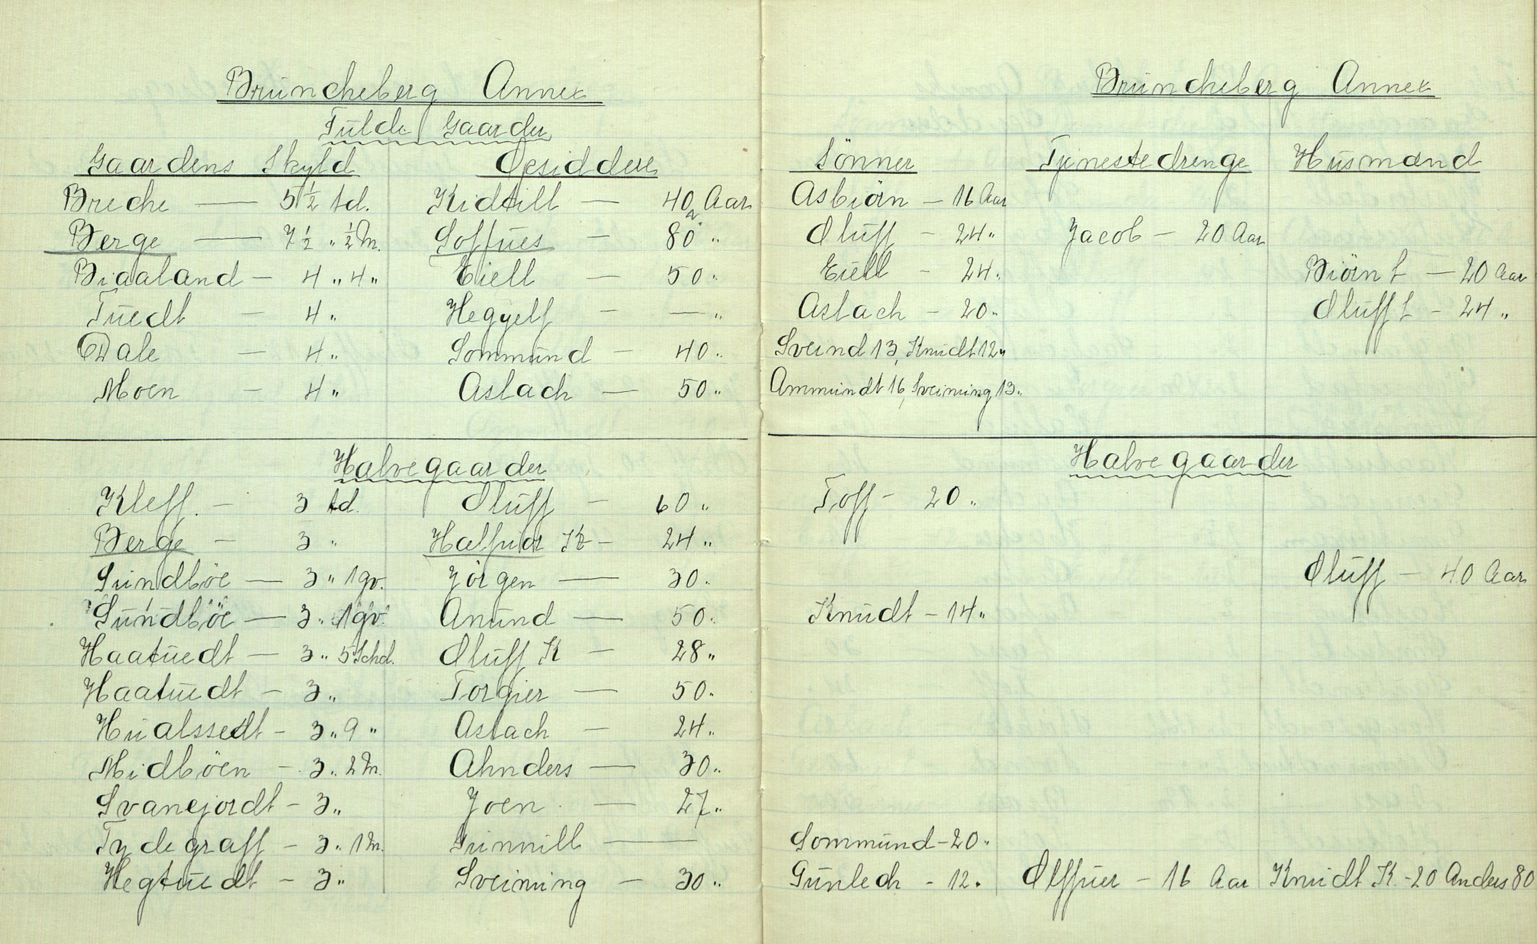 Brüncheberg Annex
Fülde Gaarder
Gaardens Skyld Opsiddere
Breche — 5½ td. Kidtill — 40 Aar
Berge — 7½ " ½ M. Soffues — 80 "
Biaaland — 4 " 4 " Eiell — 50 "
Tuedt — 4 " Hegyelf — — "
Dale — 4 " Sommünd — 40 "
Moen — 4 " Aslach — 50 "
Halvegaarder
Kleff. — 3 td. Oluff — 60 "
Berge — 3 " Halfuor K — 24 "
Sündböe — 3 " 1 gv. Jörgen — 30 "
Sündböe — 3 " 1 gv. Anünd — 50 "
Haatüedt — 3 " 5 Schd. Oluff K — 28 "
Haatüedt — 3 " Torgier — 50 "
Hualssedt — 3 " 9 " Aslach — 24 "
Midböen — 3 " 2 M. Ahnders — 30 "
Svanejordt — 3 " Joen — 27 "
Tydegraff — 3 " 1 M. Günnill —
Hegtuedt — 3 " Sveinüng — 30 "
Brüncheberg Annex
Sönner Tjenestedrenge Husmænd
Asbiön — 16 Aar
Oluff — 24 " Jacob — 20 Aar
Eiell — 24 " Biörn L — 20 Aar
Aslach — 20 " Oluff L — 24 "
Sveind 13, Knudt 12 "
Ammündt 16, Sveinüng 13 "
Halvegaarder
Toff — 20 "
Oluff — 40 Aar
Knüdt — 14 "
Sommünd — 20 "
Günlech — 12 " Olffuer — 16 Aar Knudt K — 20 Anders 80